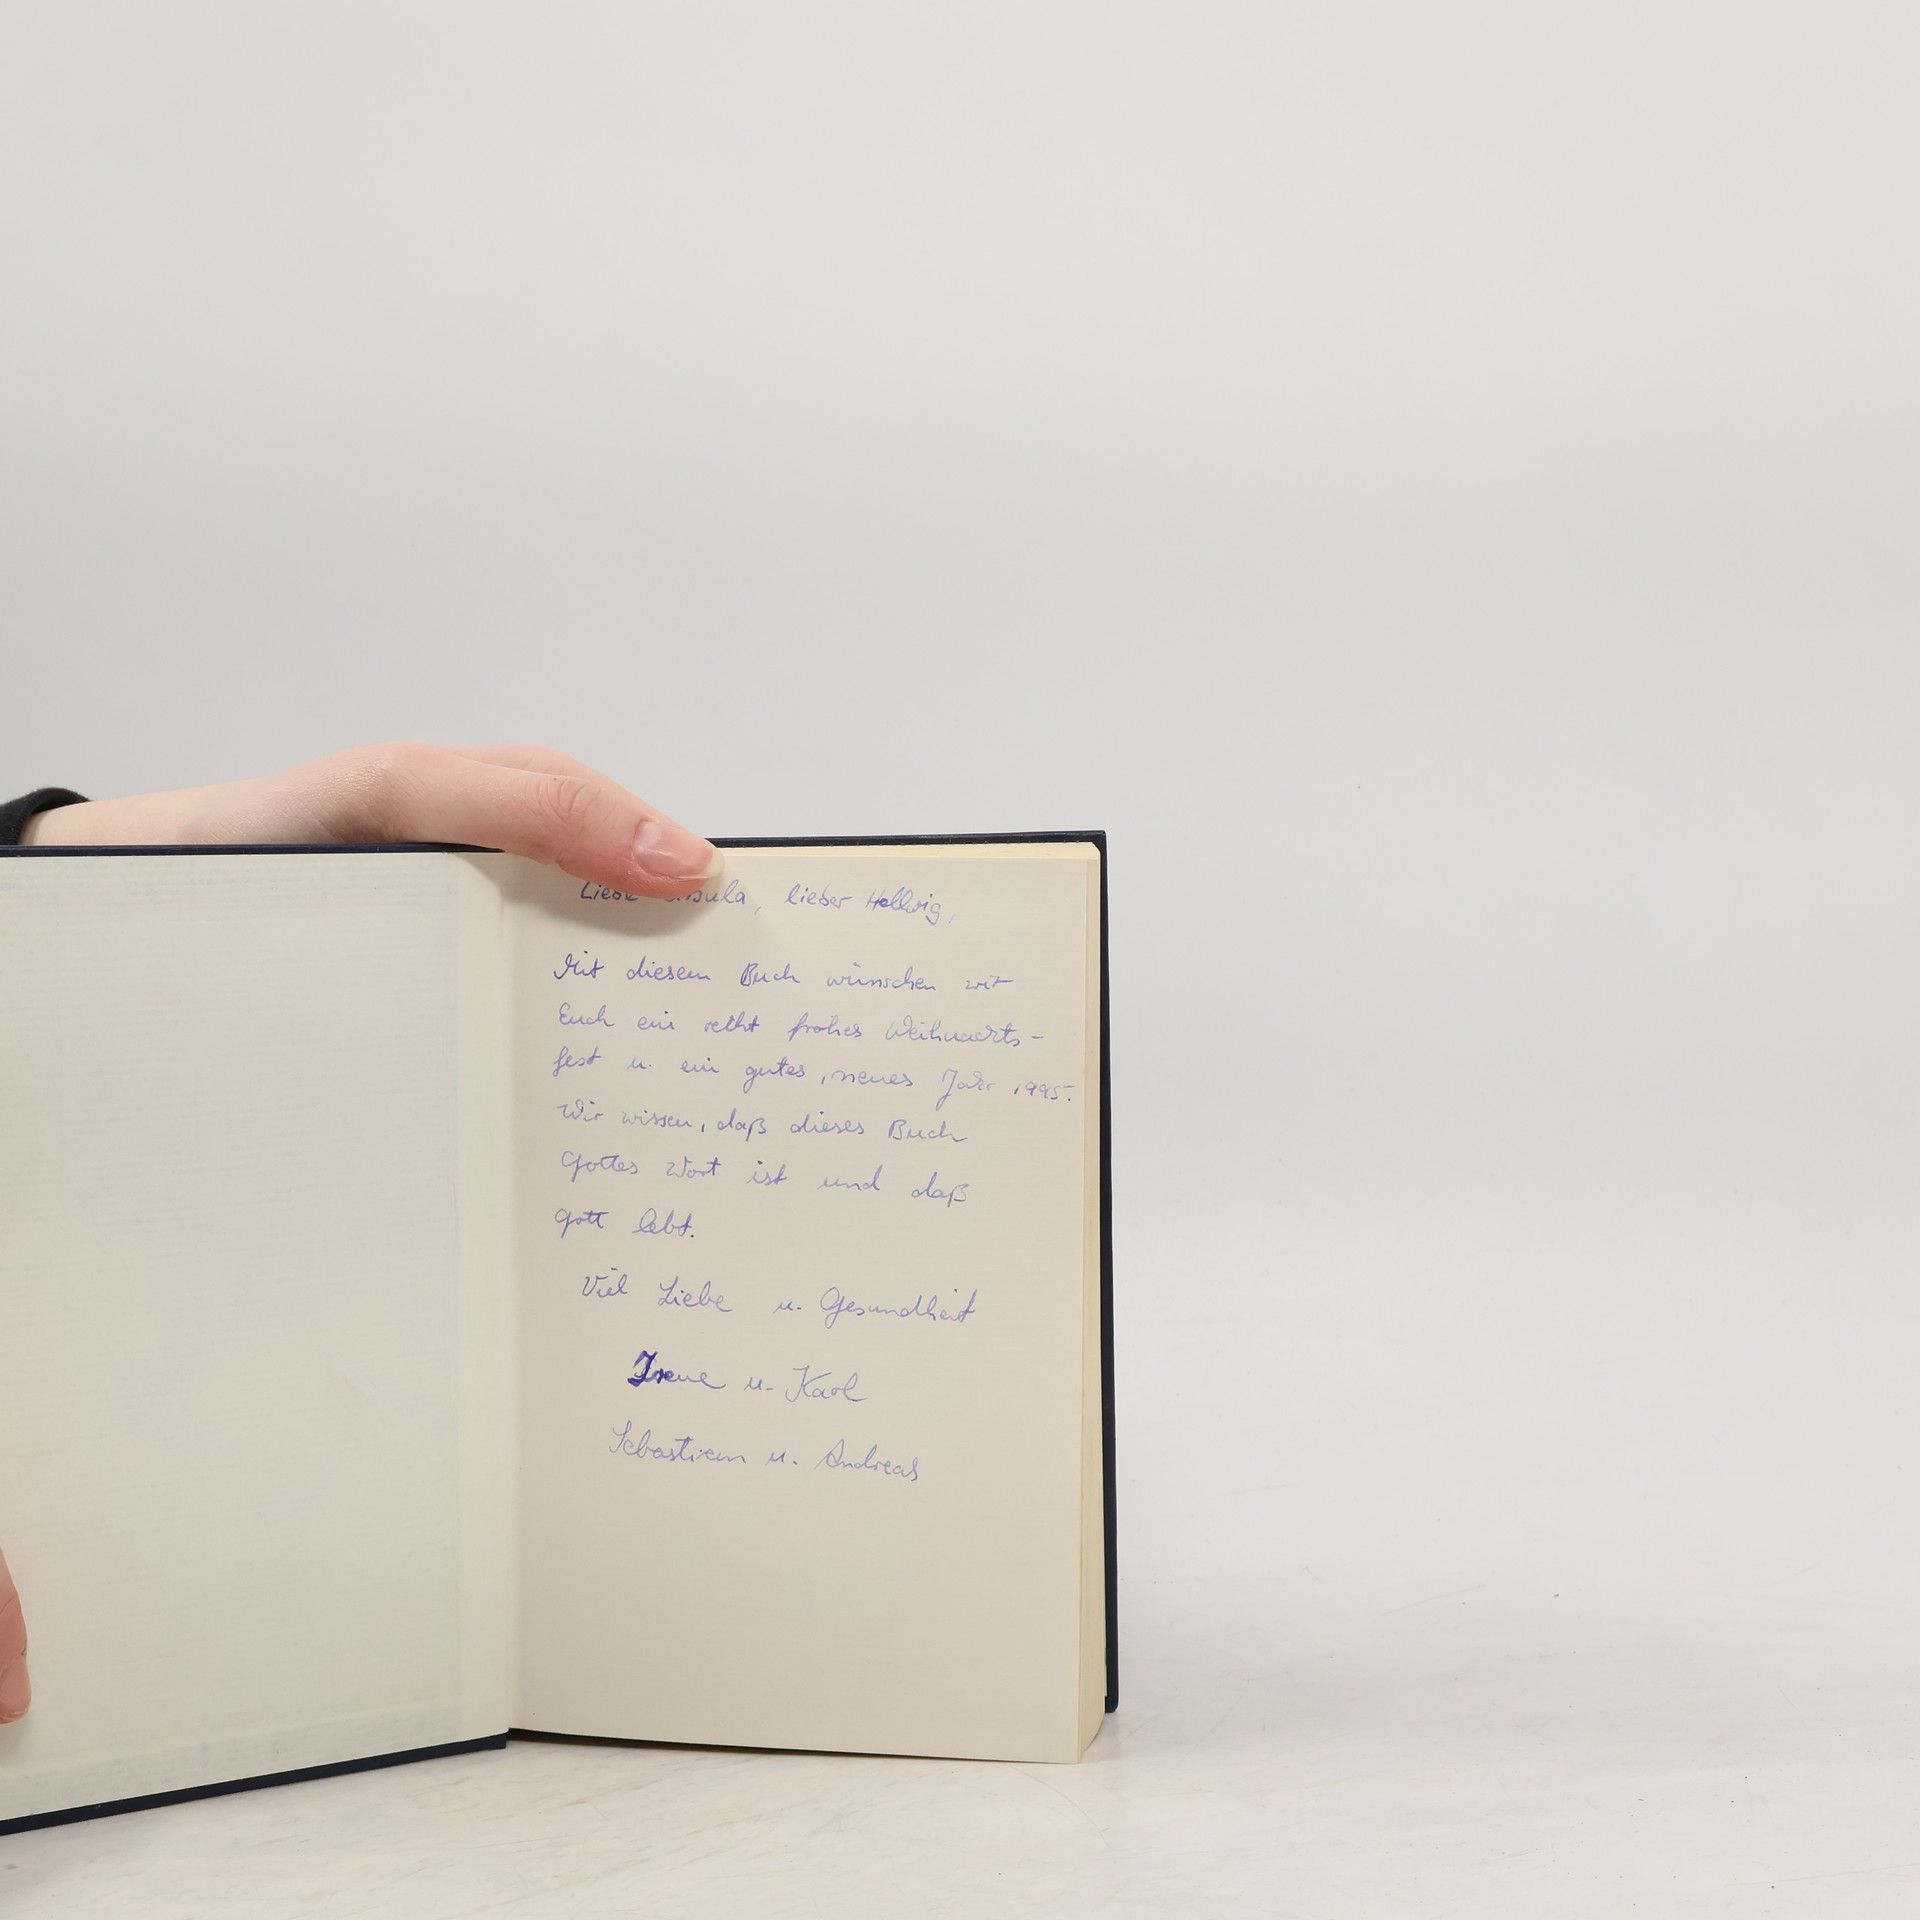 Liebe Ursula, lieber Hellwig,
Mit diesem Buch wünschen wir
Euch ein recht frohes Weihnachts-
fest u. ein gutes, neues Jahr 1995.
Wir wissen, daß dieses Buch
Gottes Wort ist und daß
Gott lebt.
Viel Liebe u. Gesundheit
Irene u. Karl
Sebastian u. Andreas